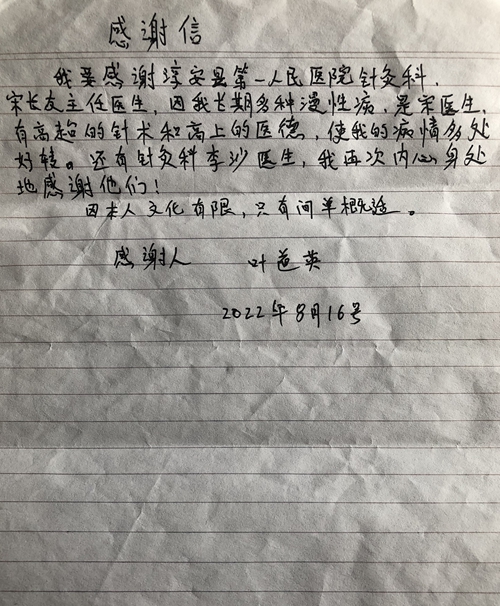 感谢信
我要感谢淳安县第一人民医院针灸科,
宋长友主任医生,因我长期多种漫性病,是宋医生,
有高超的针术和高上的医德,使我的病情多处
好转。还有针灸科李沙医生,我再次内心身处
地感谢他们!
因本人文化有限,只有间单概适。
感谢人 叶莲英
2022年8月16号